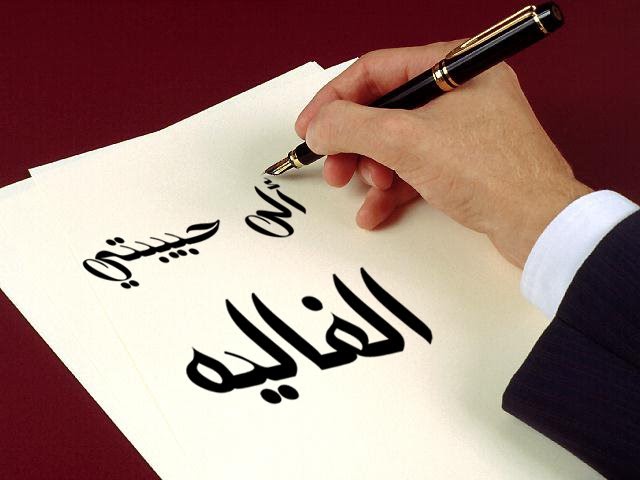 ألى حبيبتي
الغاليه